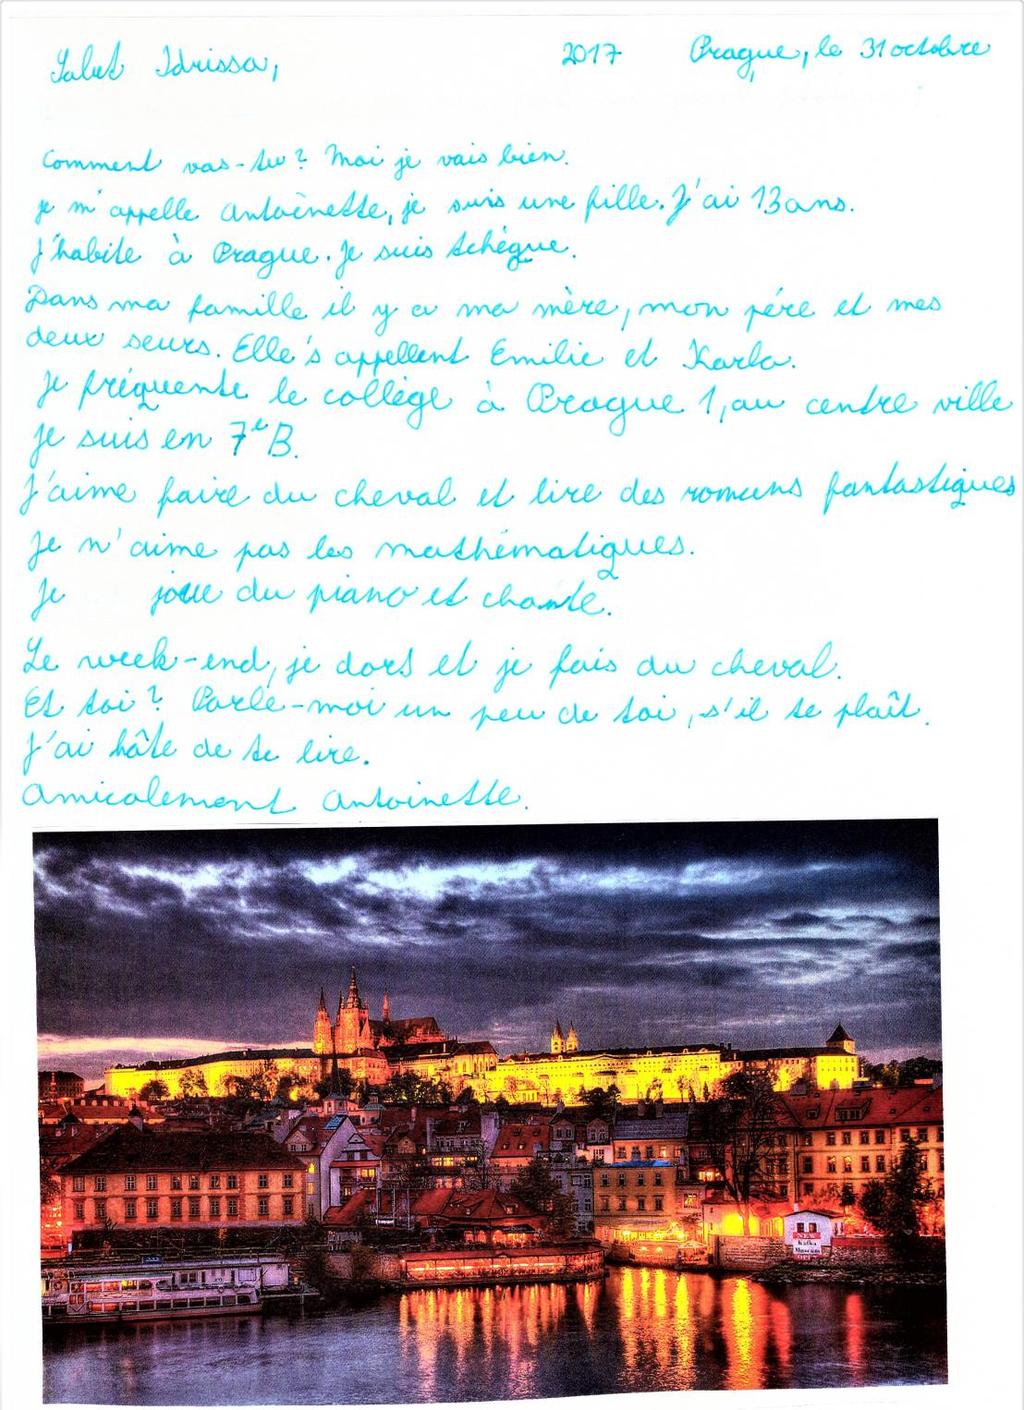 Salut Idrissa, 2017 Prague, le 31 octobre
Comment vas-tu? Moi je vais bien.
je m'appelle Antoinette, je suis une fille. J'ai 13 ans.
J'habite à Prague. Je suis tchèque.
Dans ma famille il y a ma mère, mon pére et mes
deux seurs. Elle s'appellent Emilie et Karla.
Je fréquente le collège à Prague 1, au centre ville
je suis en 7e B.
J'aime faire du cheval et lire des romans fantastiques
Je n'aime pas les mathématiques.
Je joue du piano et chante.
Le week-end, je dors et je fais du cheval.
Et toi? Parle-moi un peu de toi, s'il te plaît.
J'ai hâte de te lire.
Amicalement Antoinette.
NEW
Kafka
Museum